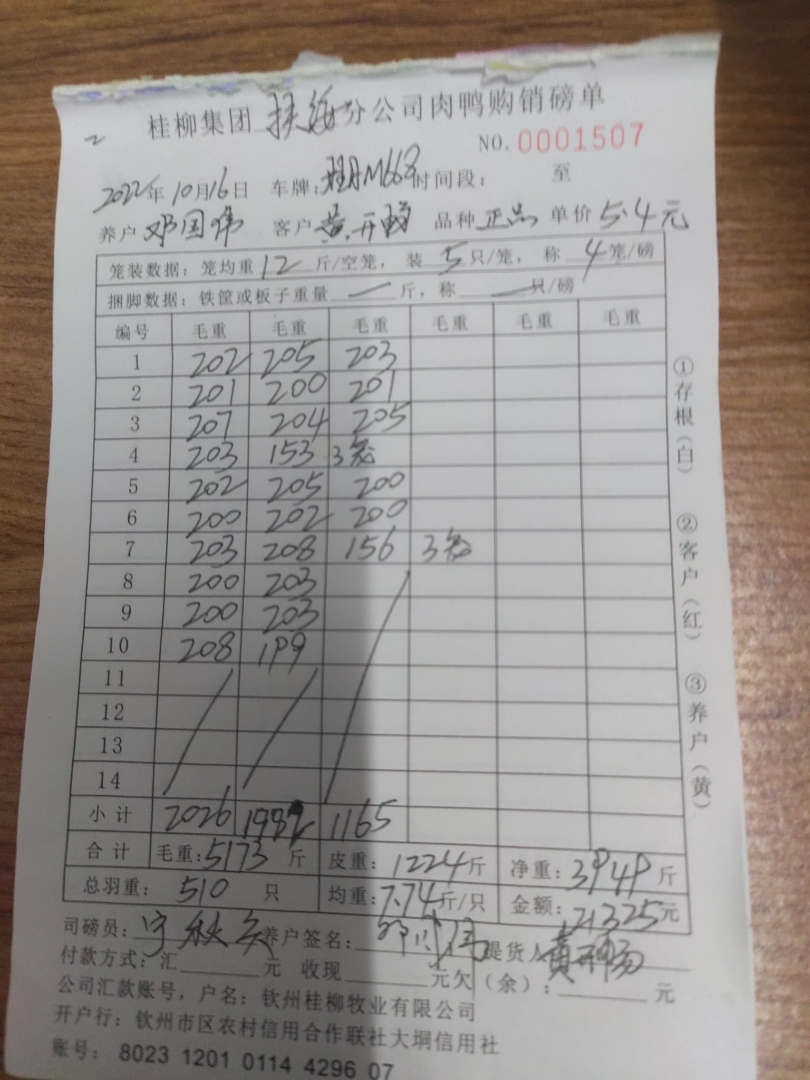 桂柳集团 扶绥 分公司肉鸭购销磅单
NO. 0001507
2022年10月16日 车牌: 时间段: 至
养户 邓国伟 客户 黄开 品种 正品 单价 5.4 元
笼装数据: 笼均重 12 斤/空笼, 装 5 只/笼, 称 4 笼/磅
捆脚数据: 铁筐或板子重量 — 斤, 称 — 只/磅
编号 毛重 毛重 毛重 毛重 毛重 毛重
1 202 205 203
2 201 200 201
3 207 204 205
4 203 153 3笼
5 202 205 200
6 200 202 200
7 203 208 156 3笼
8 200 203
9 200 203
10 208 199
11
12
13
14
小计 2026 1982 1165
合计 毛重: 5173 斤 皮重: 1224 斤 净重: 3949 斤
总羽重: 510 只 均重: 7.74 斤/只 金额: 21325 元
司磅员: 养户签名: 提货人
付款方式: 汇 元 收现 元 欠(余): 元
公司汇款账号, 户名: 钦州桂柳牧业有限公司
开户行: 钦州市区农村信用合作联社大垌信用社
账号: 8023 1201 0114 4296 07
①存根(白)
②客户(红)
③养户(黄)